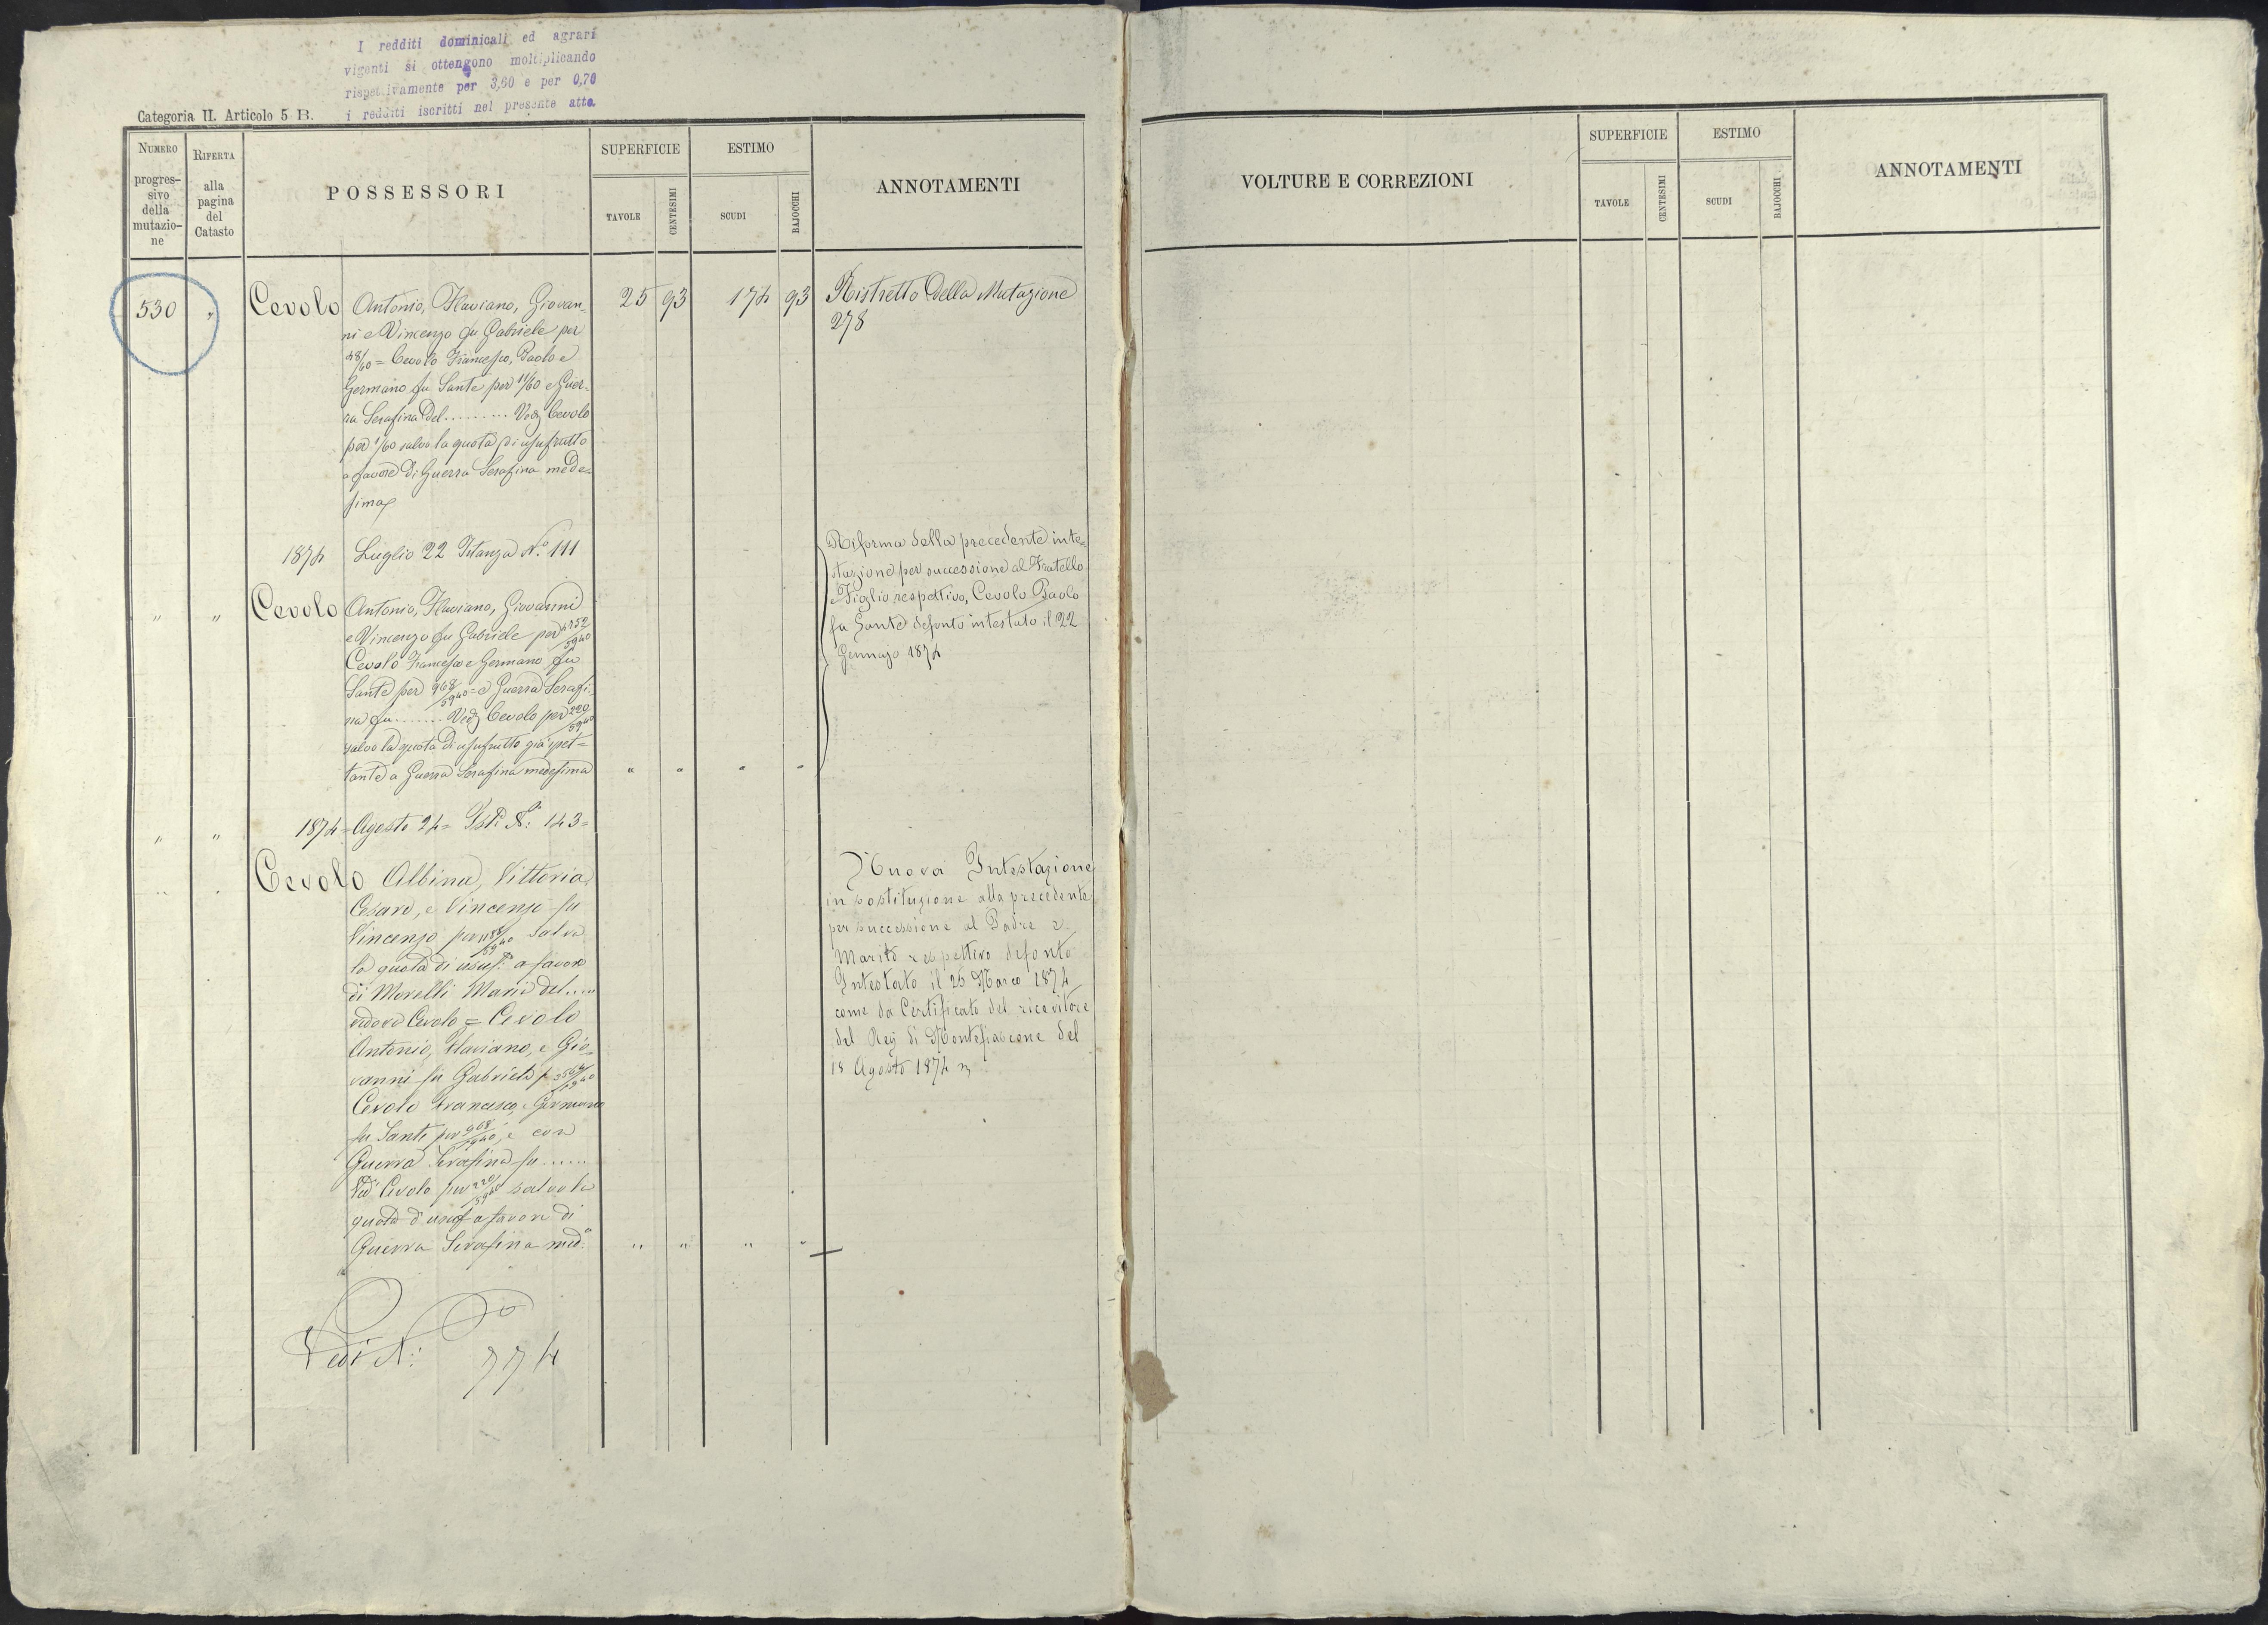 I redditi dominicali ed agrari
vigenti si ottengono moltiplicando
rispettivamente per 3,60 e per 0,70
i redditi iscritti nel presente atto.
Categoria II. Articolo 5 B.
NUMERO progres-
sivo
della
mutazio-
ne
RIFERTA
alla
pagina
del
Catasto
POSSESSORI
SUPERFICIE
TAVOLE
CENTESIMI
ESTIMO
SCUDI
BAJOCCHI
ANNOTAMENTI
530 " Cevolo Antonio, Flaviano, Giovan- 25 93 174 93 Ristretto della Mutazione
ni e Vincenzo fu Gabriele per 278
48/60 = Cevolo Francesco, Paolo e
Germano fu Sante per 11/60 e Guer-
ra Serafina del ......... Vedᵃ Cevolo
per 1/60 salvo la quota di usufrutto
a favore di Guerra Serafina mede-
sima
1874 Luglio 22 Istanza Nº 111
" " Cevolo Antonio, Flaviano, Giovanni
e Vincenzo fu Gabriele per 4752/5940
Cevolo Francesco e Germano fu
Sante per 968/5940 = e Guerra Serafi-
na fu ........ Vedᵃ Cevolo per 220/5940
salvo la quota di usufrutto già spet=
tante a Guerra Serafina medesima " " " "
Riforma della precedente inte=
stazione per successione al Fratello
e Figlio respettivo, Cevolo Paolo
fu Sante defonto intestato il 22
Gennajo 1874
" " 1874 = Agosto 24 = Istᵃ Nº: 143 =
" " Cevolo Albina, Vittoria,
Cesare, e Vincenzo fu
Vincenzo per 1188/5940 salva
la quota di usufº a favore
di Morelli Maria del ....
vedova Cevolo = Cevolo
Antonio, Flaviano, e Gio-
vanni fu Gabriele p 3564/5940
Cevolo Francesco, e Germano
fu Sante per 968/5940, e con
Guerra Serafina fu ......
Vedᵃ Cevolo per 220/5940 salvo la
quota d'usuf a favore di
Guerra Serafina medª " " " "
Nuova Intestazione
in sostituzione alla precedente
per successione al Padre e
Marito respettivo defonto
Intestato il 25 Marzo 1874
come da Certificato del ricevitore
del Reg di Montefiascone del
18 Agosto 1874
Vedi N: 774
VOLTURE E CORREZIONI
SUPERFICIE
TAVOLE
CENTESIMI
ESTIMO
SCUDI
BAJOCCHI
ANNOTAMENTI